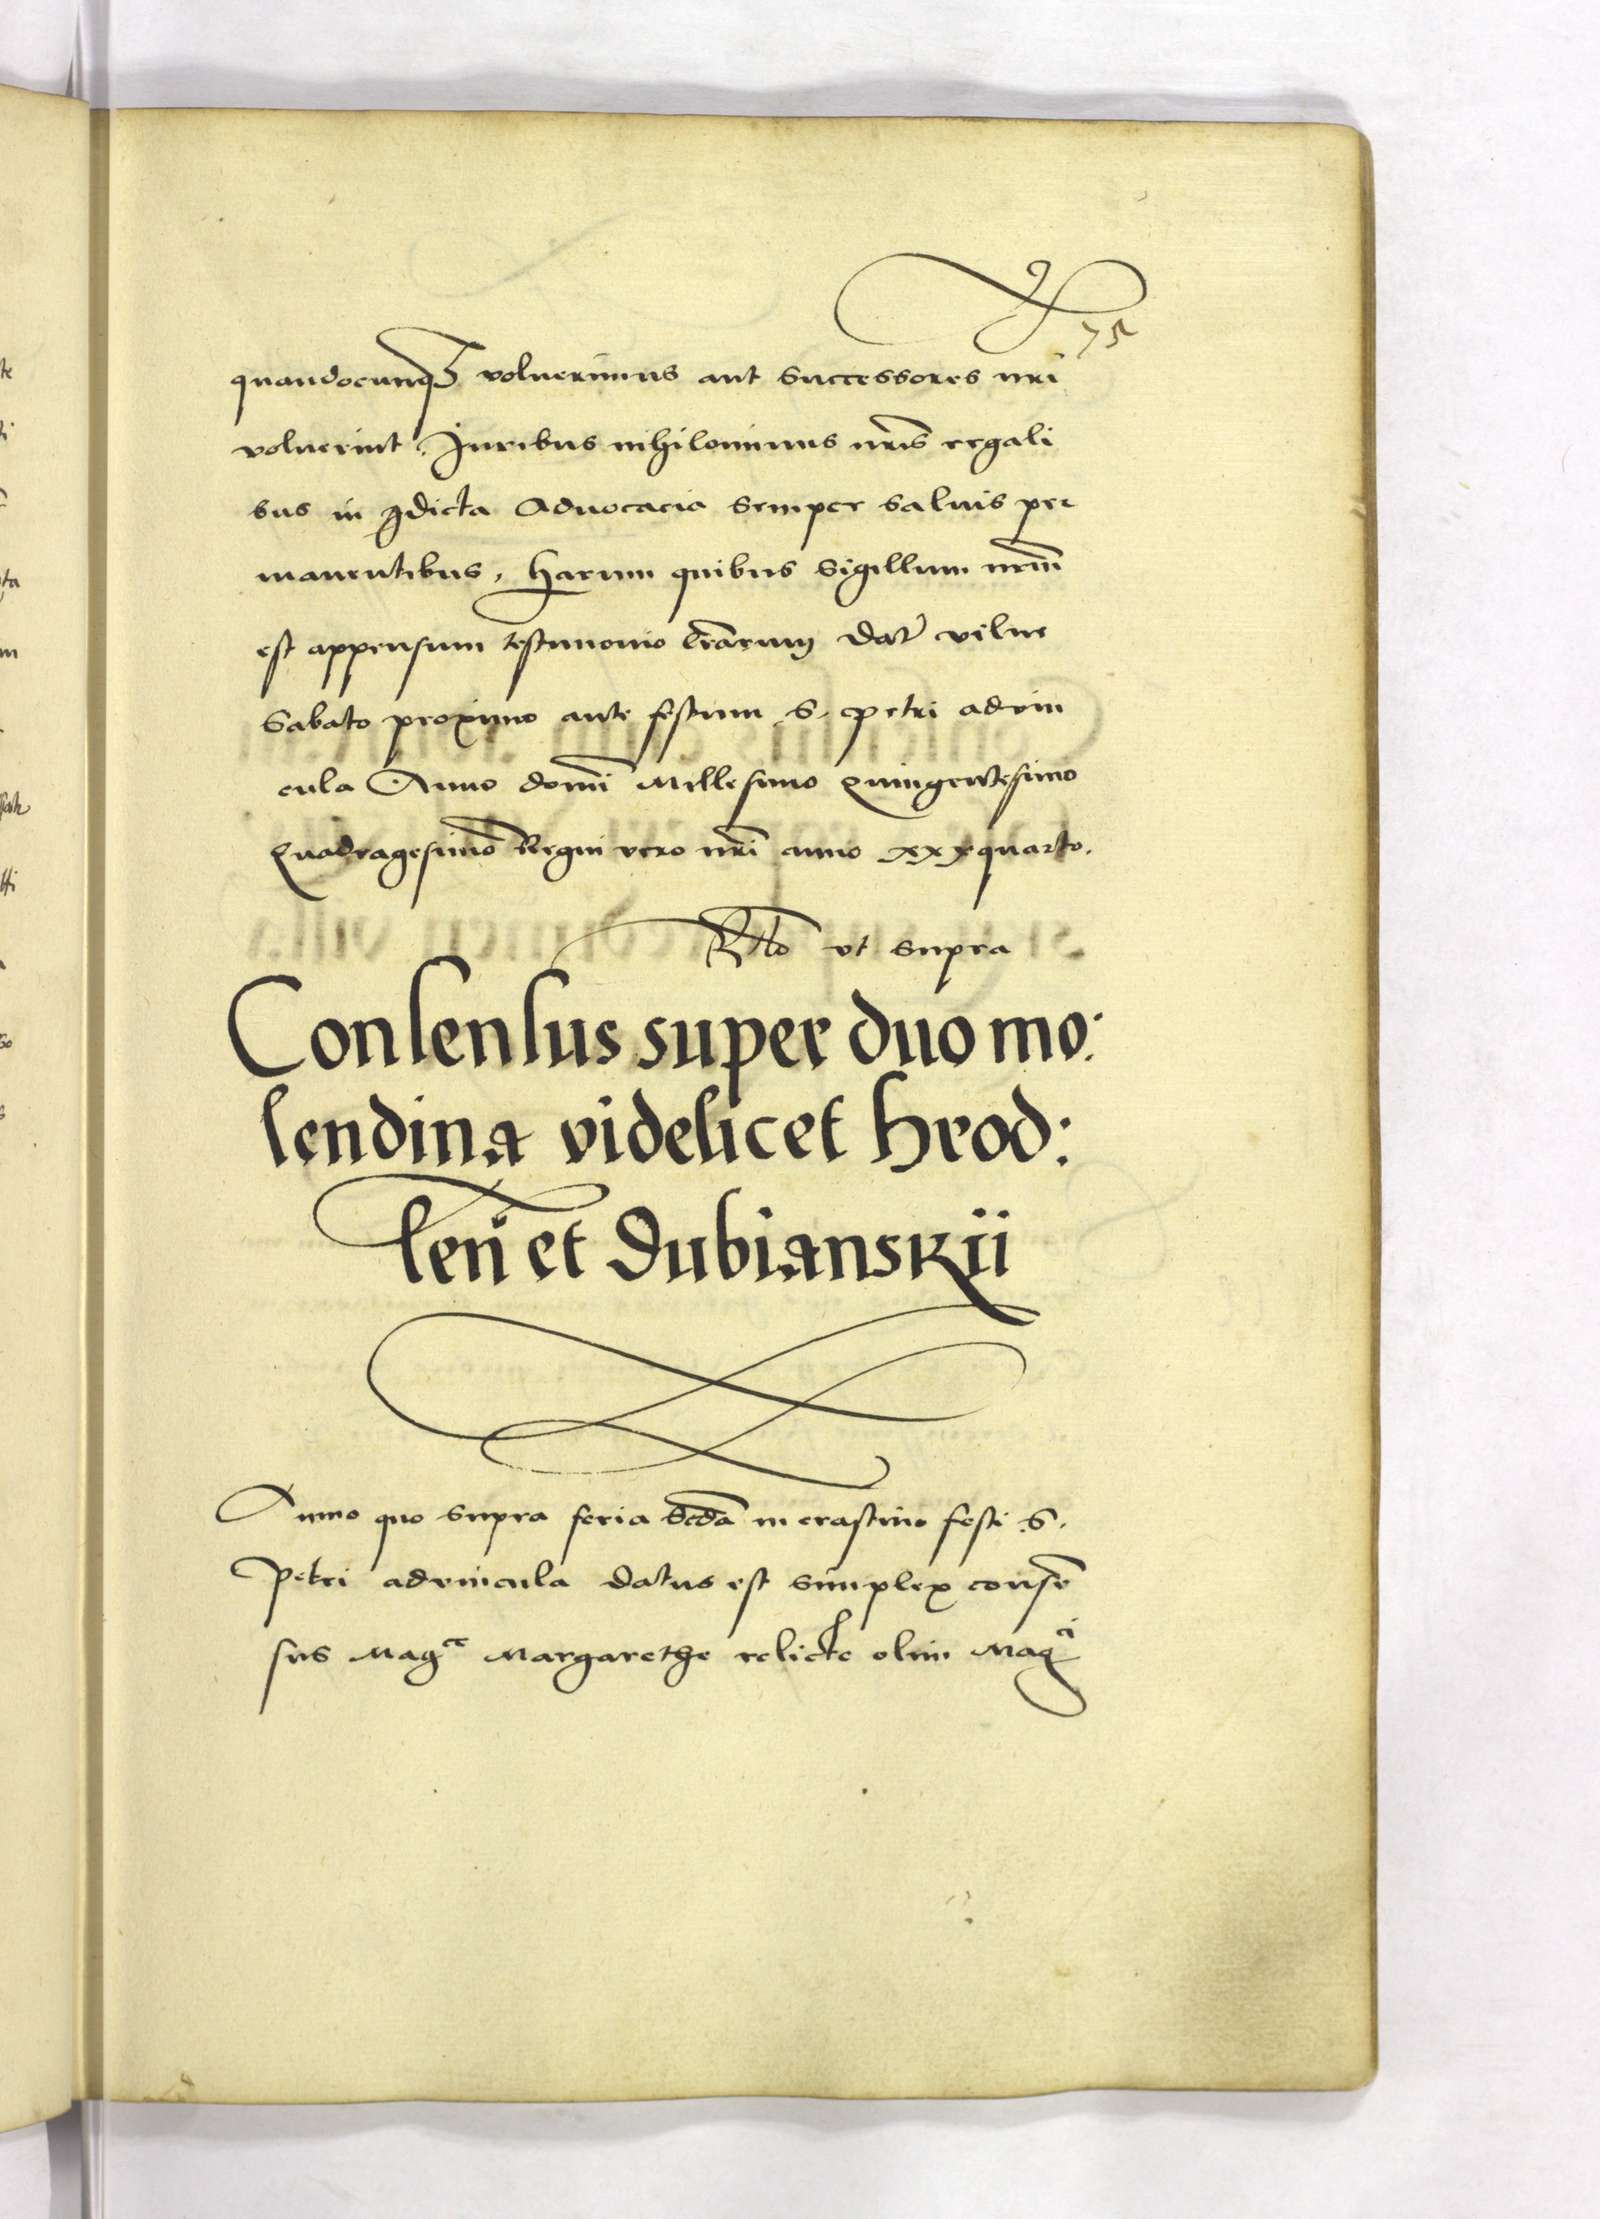 75
quandocunq₃ voluerimus aut successores nri
voluerint. Iuribus nihilominus nris regali
bus in pdicta Advocacia semper salvis per
manentibus, harum quibus sigillum nrm
est appensum testimonio lrarum Dat vilne
Sabato proximo ante festum S. petri advin
cula Anno domi Millesimo Quingentesimo
Quadragesimo Regni vero nri anno xxxquarto.
Rlo vt supra
Consensus super duo mo:
lendina videlicet hrod:
len et Dubianskii
Anno quo supra feria Scda in crastino festi S.
Petri advincula datus est simplex consen
sus Magce Margarethe relicte olim Magci